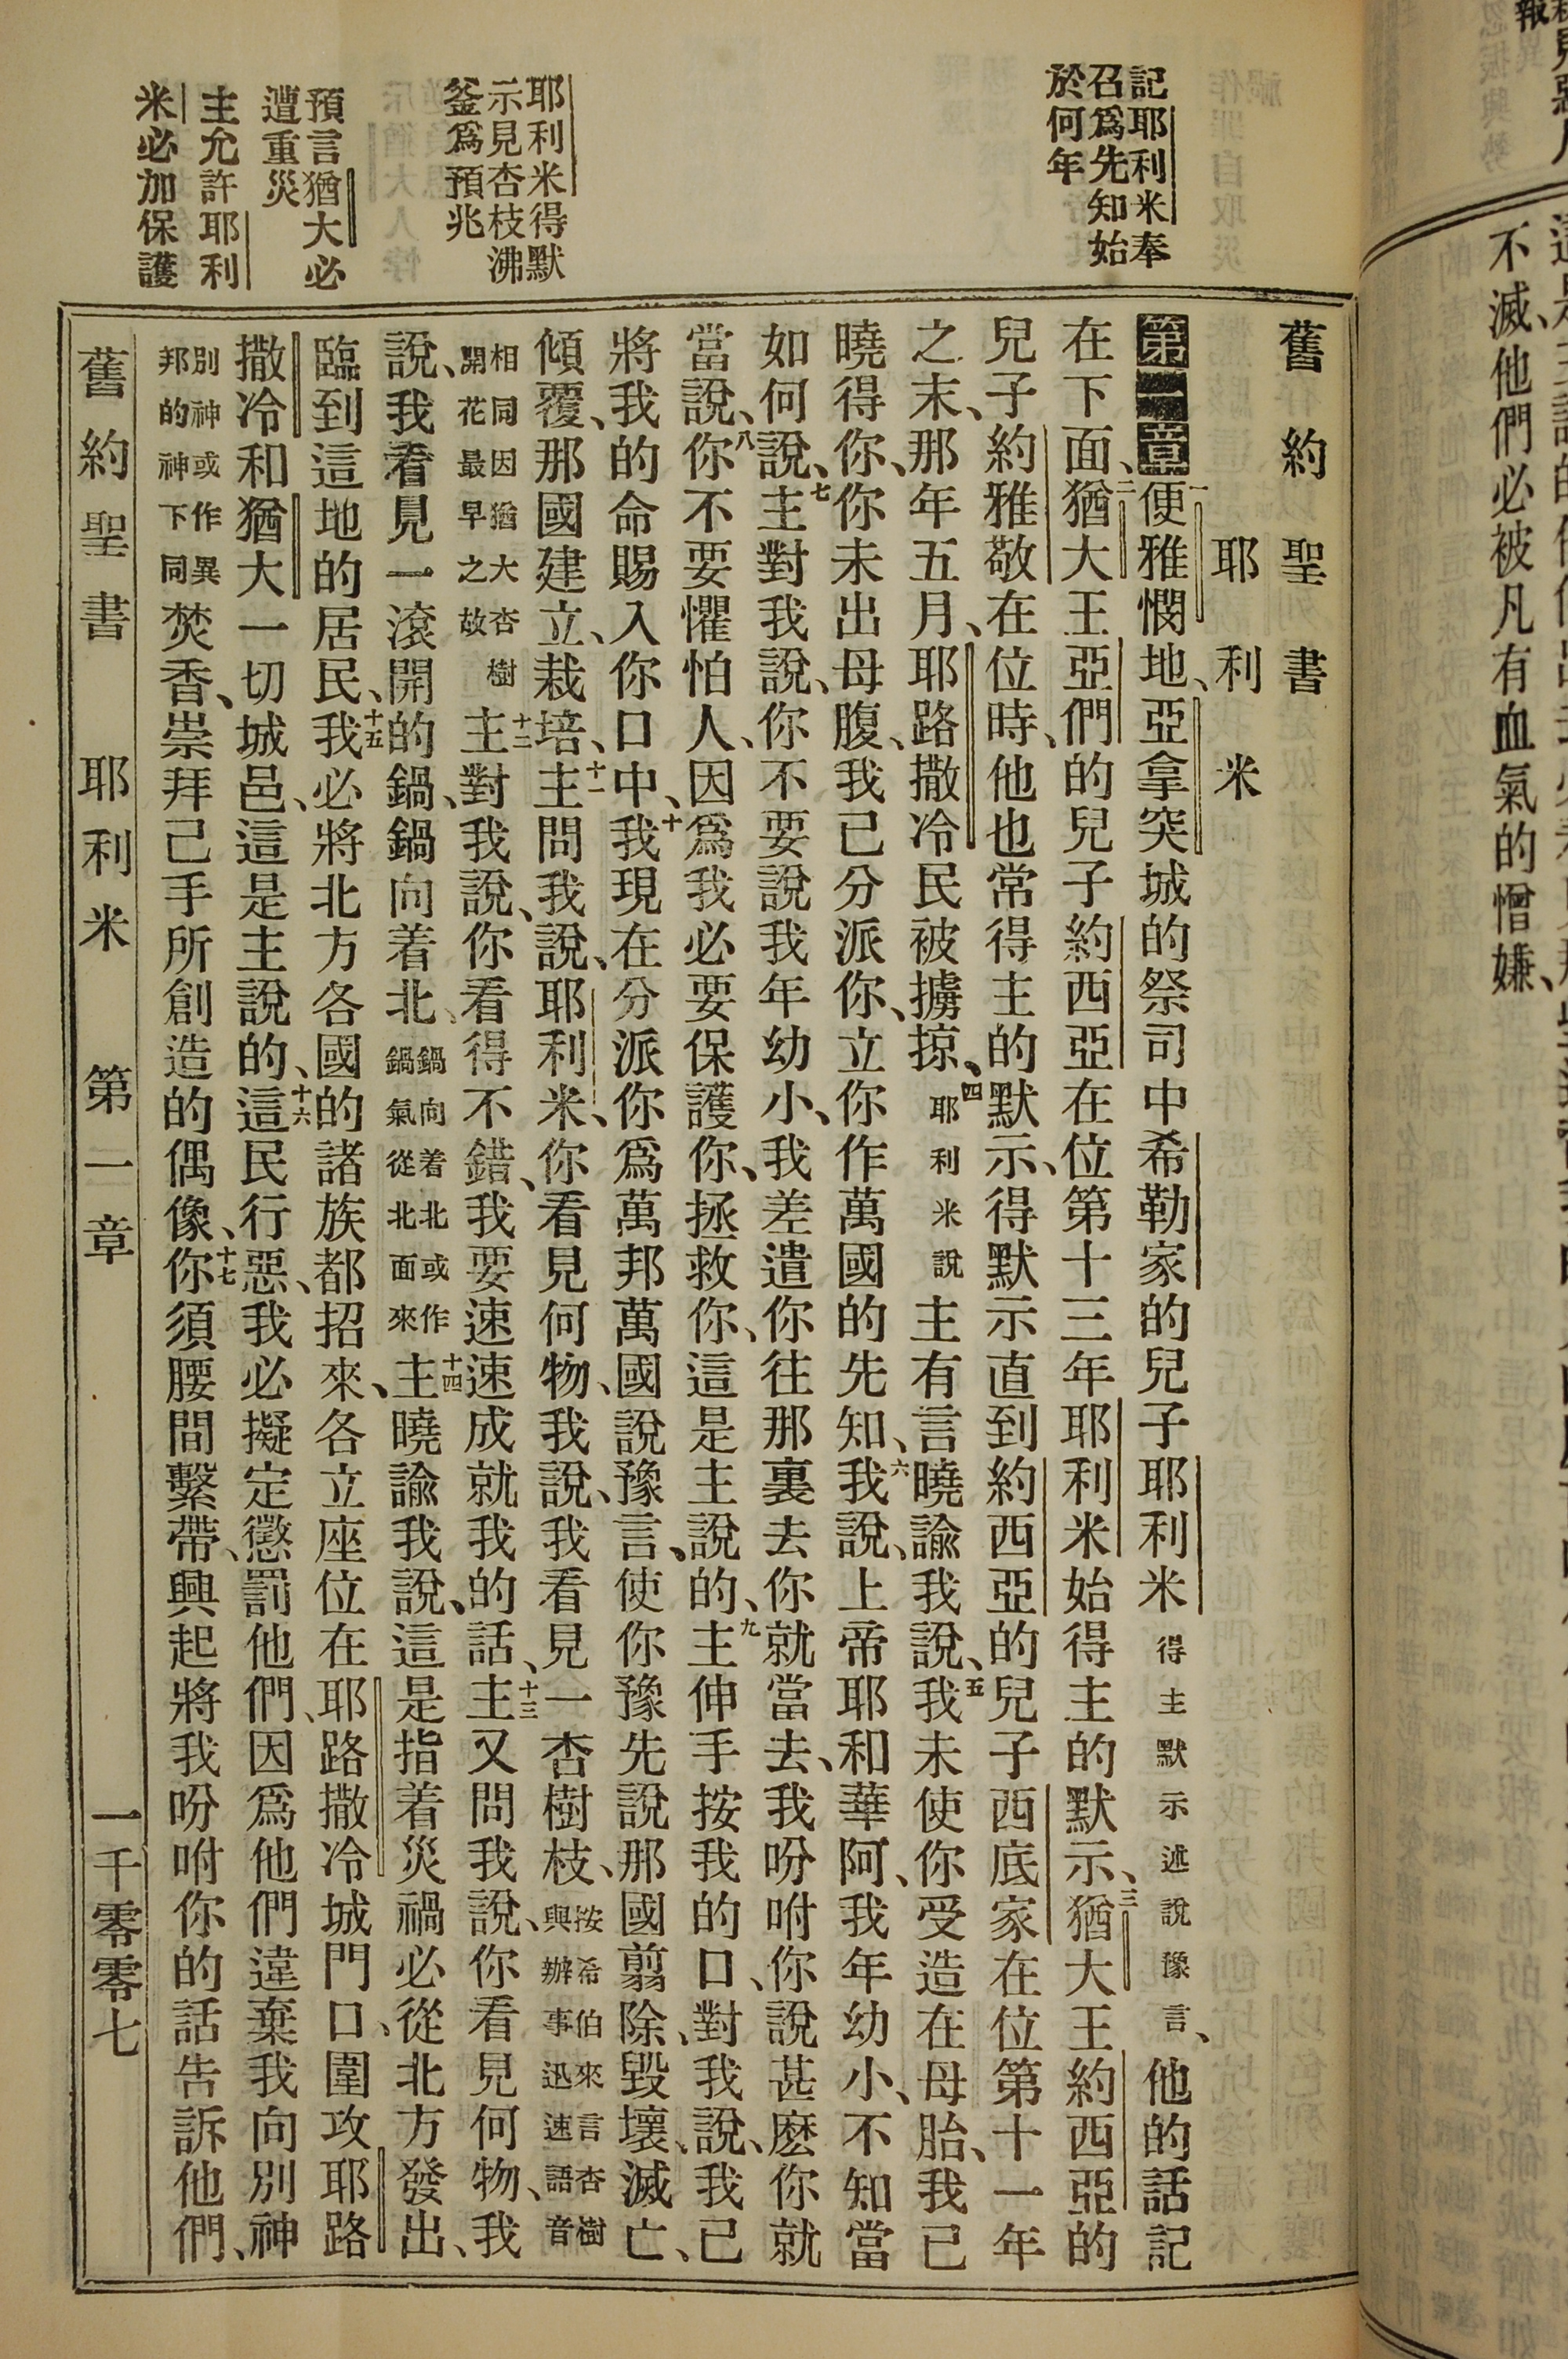 不滅、他們必被凡有血氣的憎嫌、
記耶利米奉
召爲先知始
於何年
耶利米得默
示見杏枝沸
釜爲預兆
預言猶大必
遭重災
主允許耶利
米必加保護
舊約聖書
耶利米
第一章一便雅憫地、亞拿突城的祭司中希勒家的兒子耶利米得主默示述說豫言、他的話記
在下面、二猶大王亞們的兒子約西亞在位第十三年耶利米始得主的默示、三猶大王約西亞的
兒子約雅敬在位時、他也常得主的默示、得默示直到約西亞的兒子西底家在位第十一年
之末、那年五月、耶路撒冷民被擄掠、四耶利米說主有言曉諭我說、五我未使你受造在母胎、我已
曉得你、你未出母腹、我已分派你、立你作萬國的先知、六我說、上帝耶和華阿、我年幼小、不知當
如何說、七主對我說、你不要說我年幼小、我差遣你往那裏去你就當去、我吩咐你說甚麽你就
當說、八你不要懼怕人、因爲我必要保護你、拯救你、這是主說的、九主伸手按我的口、對我說、我已
將我的命賜入你口中、十我現在分派你爲萬邦萬國說豫言、使你豫先說那國翦除、毀壞、滅亡、
傾覆、那國建立、栽培、十一主問我說、耶利米、你看見何物、我說、我看見一杏樹枝、按希伯來言杏樹與辦事迅速語音
相同因猶大杏樹開花最早之故十二主對我說、你看得不錯、我要速速成就我的話、十三主又問我說、你看見何物、我
說、我看見一滾開的鍋、鍋向着北、鍋向着北或作鍋氣從北面來十四主曉諭我說、這是指着災禍必從北方發出、
臨到這地的居民、十五我必將北方各國的諸族都招來、各立座位在耶路撒冷城門口、圍攻耶路
撒冷和猶大一切城邑、這是主說的、十六這民行惡、我必擬定懲罰他們、因爲他們違棄我向別神
別神或作異邦的神下同焚香、崇拜己手所創造的偶像、十七你須腰間繫帶、興起將我吩咐你的話告訴他們、
舊約聖書 耶利米 第一章 一千零零七